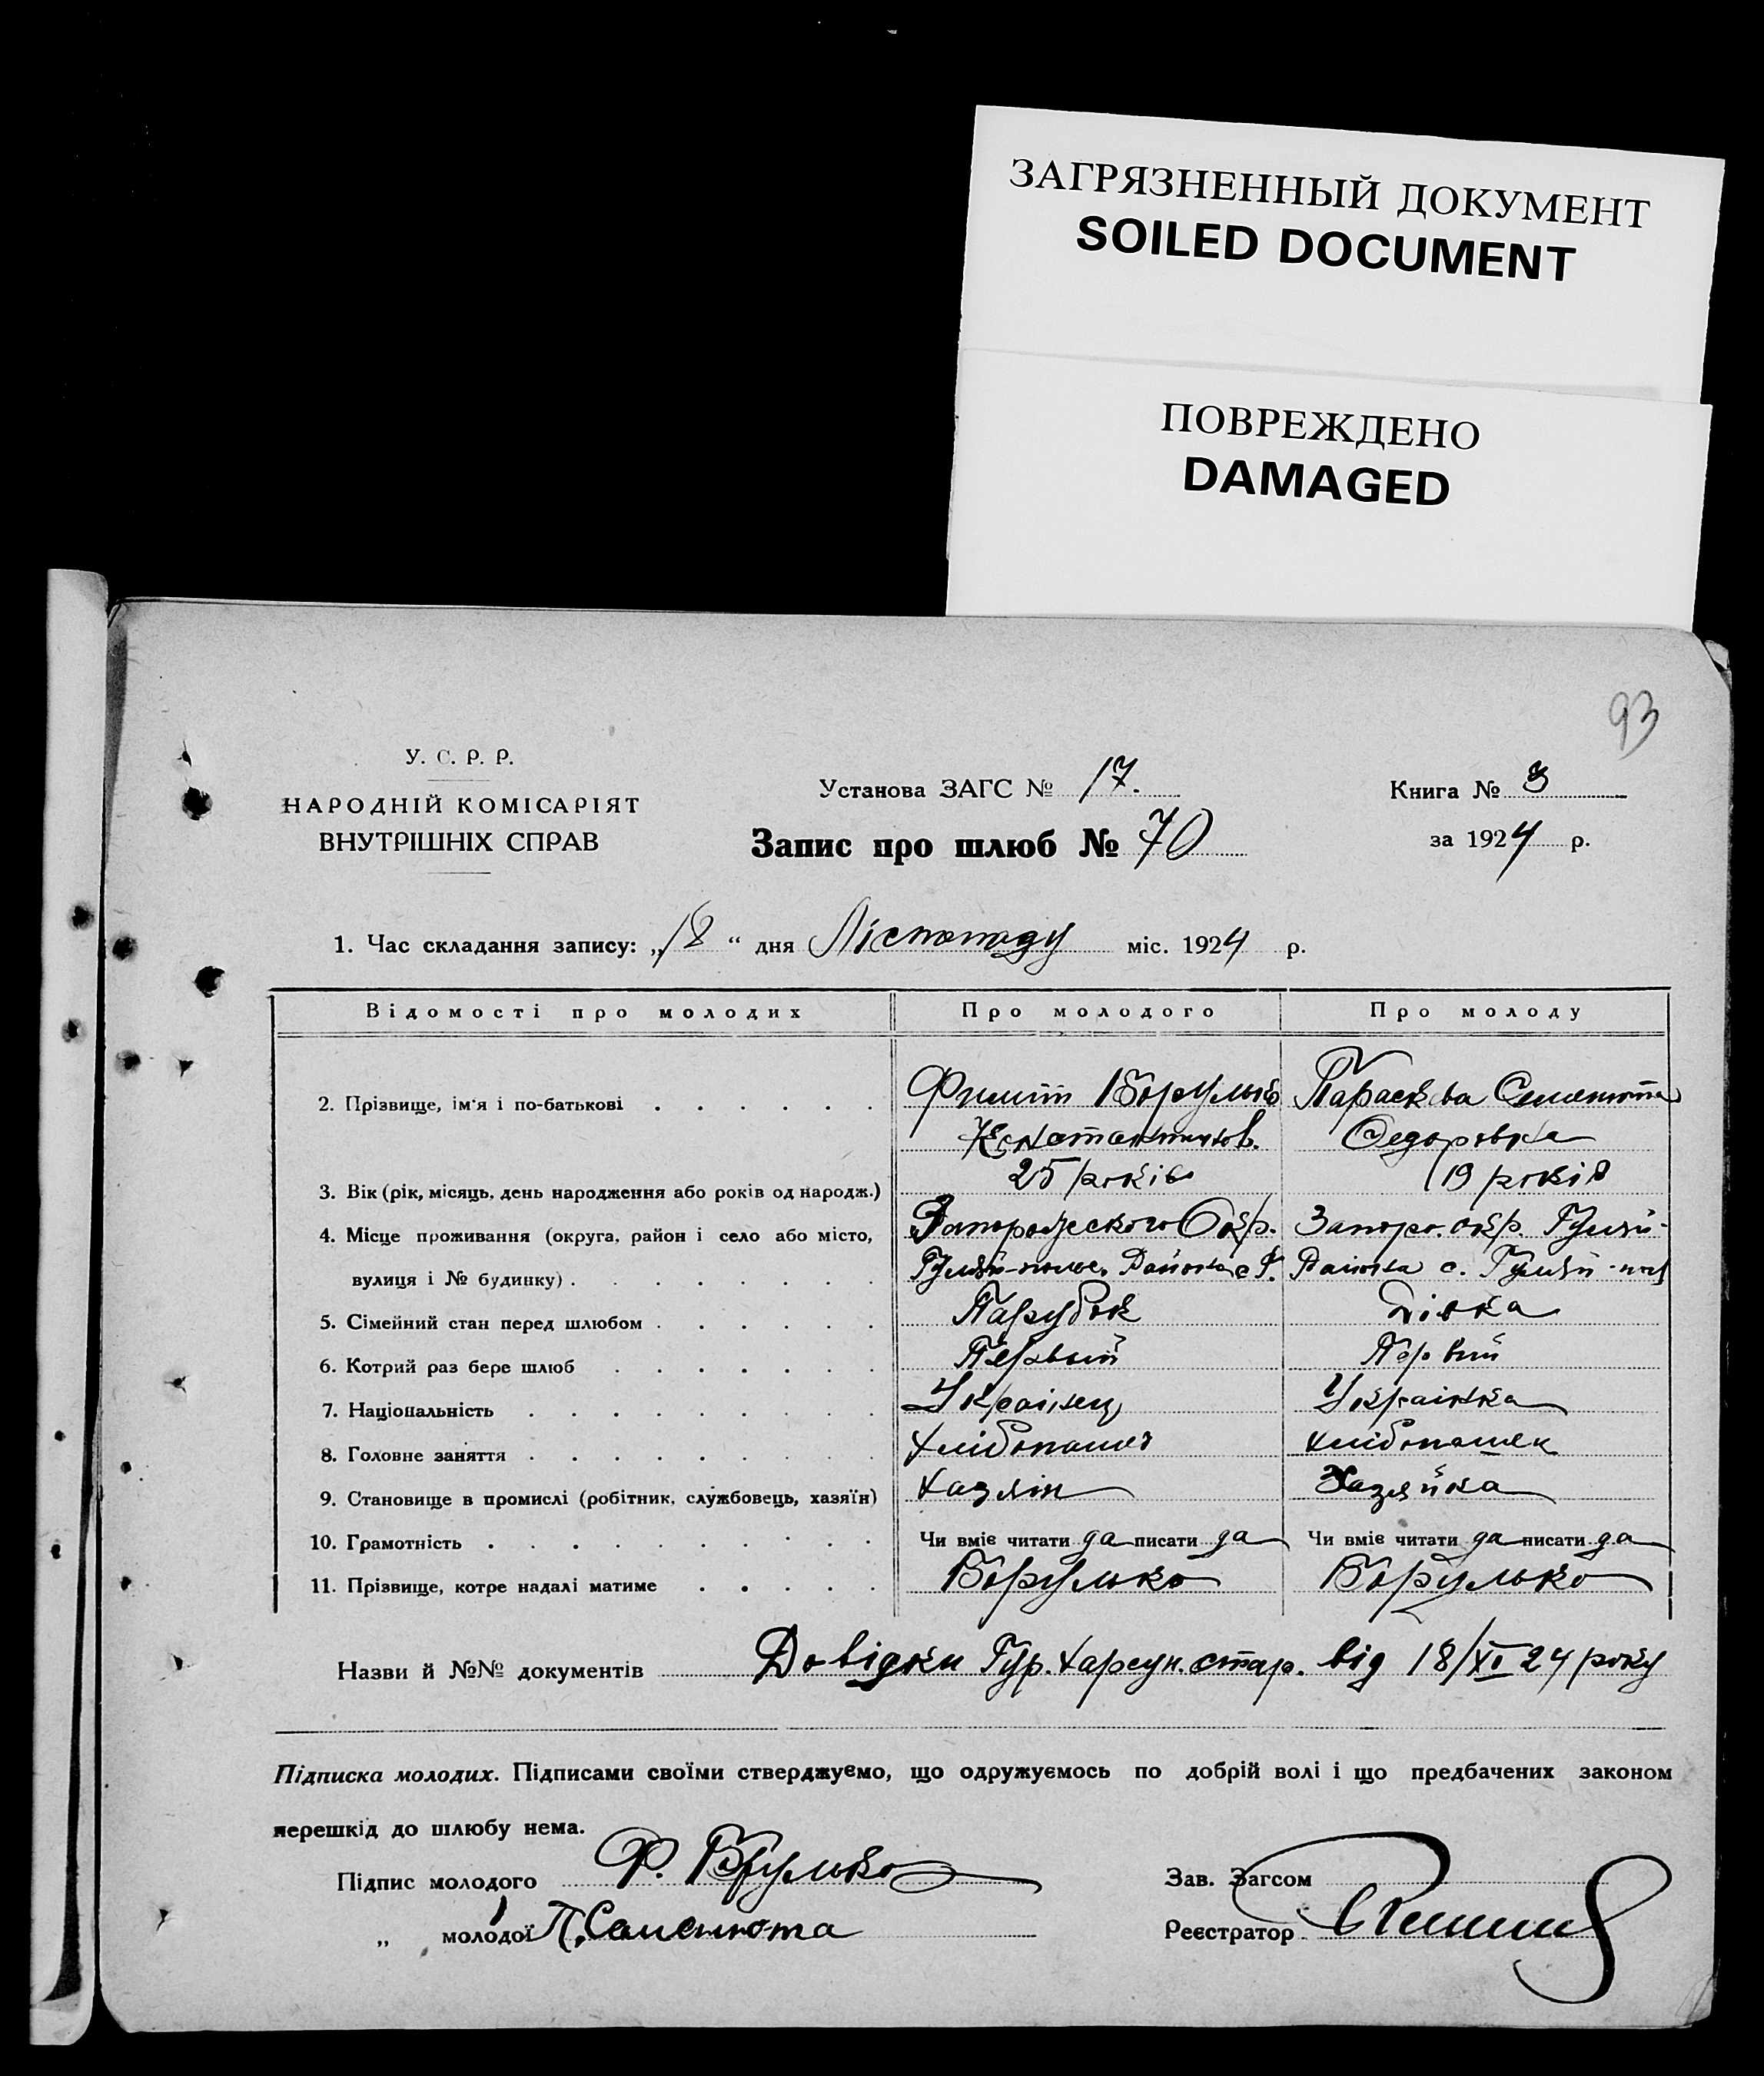 ЗАГРЯЗНЕННЫЙ ДОКУМЕНТ
SOILED DOCUMENT
ПОВРЕЖДЕНО
DAMAGED
93
У. С. Р. Р.
НАРОДНІЙ КОМІСАРІЯТ
ВНУТРІШНІХ СПРАВ
Установа ЗАГС № 17.
Запис про шлюб № 70
Книга № 3
за 1924 р.
1. Час складання запису: „18“ дня Ліспопаду міс. 1924 р.
Відомості про молодих Про молодого Про молоду
2. Прізвище, ім'я і по-батькові Филип Борулько Параскева Семенюта
Константинов. Федоровна
3. Вік (рік, місяць, день народження або років од народж.) 25 років 19 років
4. Місце проживання (округа, район і село або місто, Запорожского Окр. Запоро. окр. Гуляй-
вулиця і № будинку) Гуляй-полье. Района с Г. Района с. Гуляй-пол
5. Сімейний стан перед шлюбом Парубок Дівка
6. Котрий раз бере шлюб Первый Первий
7. Національність Украінец Украінка
8. Головне заняття хлібопашец хлібопашек
9. Становище в промислі (робітник, службовець, хазяїн) хазяін Хазяйка
10. Грамотність Чи вміє читати да писати да Чи вміє читати да писати да
11. Прізвище, котре надалі матиме Борулько Борулько
Назви й №№ документів Довідки Гур. Харсун. стар. від 18/XI 24 року
Підписка молодих. Підписами своїми стверджуємо, що одружуємось по добрій волі і що предбачених законом
перешкід до шлюбу нема.
Підпис молодого Ф. Борулько
„ молодої П. Семенюта
Зав. Загсом
Реєстратор